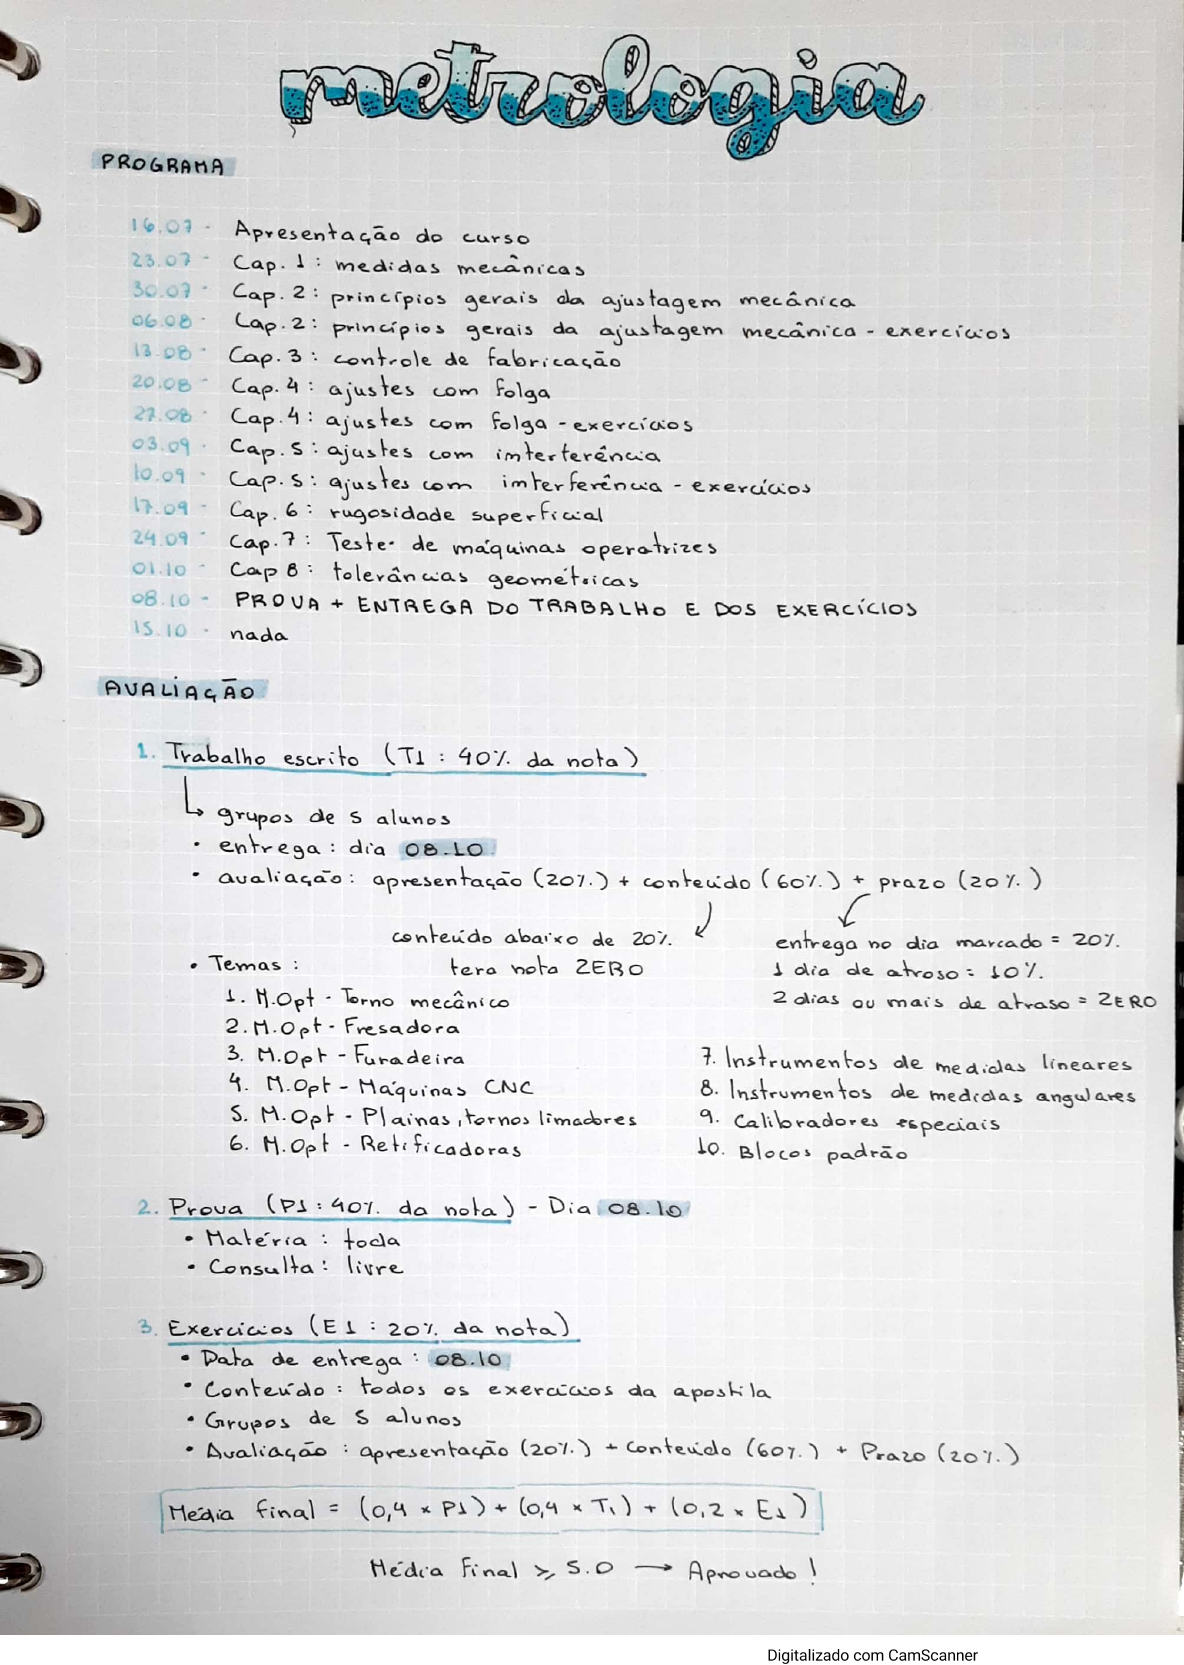 metrologia
PROGRAMA
16.07 - Apresentação do curso
23.07 - Cap. 1 : medidas mecânicas
30.07 - Cap. 2 : princípios gerais da ajustagem mecânica
06.08 - Cap. 2 : princípios gerais da ajustagem mecânica - exercícios
13.08 - Cap. 3 : controle de fabricação
20.08 - Cap. 4 : ajustes com folga
27.08 - Cap. 4 : ajustes com folga - exercícios
03.09 - Cap. 5 : ajustes com interferência
10.09 - Cap. 5 : ajustes com interferência - exercícios
17.09 - Cap. 6 : rugosidade superficial
24.09 - Cap. 7 : Teste de máquinas operatrizes
01.10 - Cap 8 : tolerâncias geométricas
08.10 - PROVA + ENTREGA DO TRABALHO E DOS EXERCÍCIOS
15.10 - nada
AVALIAÇÃO
1. Trabalho escrito (T1 : 40% da nota)
↳ grupos de 5 alunos
• entrega : dia 08.10
• avaliação : apresentação (20%) + conteúdo (60%) + prazo (20%)
conteúdo abaixo de 20%
tera nota ZERO
entrega no dia marcado = 20%
1 dia de atraso = 10%
2 dias ou mais de atraso = ZERO
• Temas :
1. M.Opt - Torno mecânico
2. M.Opt - Fresadora
3. M.Opt - Furadeira
4. M.Opt - Máquinas CNC
5. M.Opt - Plainas, tornos limadores
6. M.Opt - Retificadoras
7. Instrumentos de medidas lineares
8. Instrumentos de medidas angulares
9. Calibradores especiais
10. Blocos padrão
2. Prova (P1 : 40% da nota) - Dia 08.10
• Matéria : toda
• Consulta : livre
3. Exercícios (E1 : 20% da nota)
• Data de entrega : 08.10
• Conteúdo : todos os exercícios da apostila
• Grupos de 5 alunos
• Avaliação : apresentação (20%) + conteúdo (60%) + Prazo (20%)
Média final = (0,4 × P1) + (0,4 × T1) + (0,2 × E1)
Média Final ⩾ 5.0 → Aprovado !
Digitalizado com CamScanner